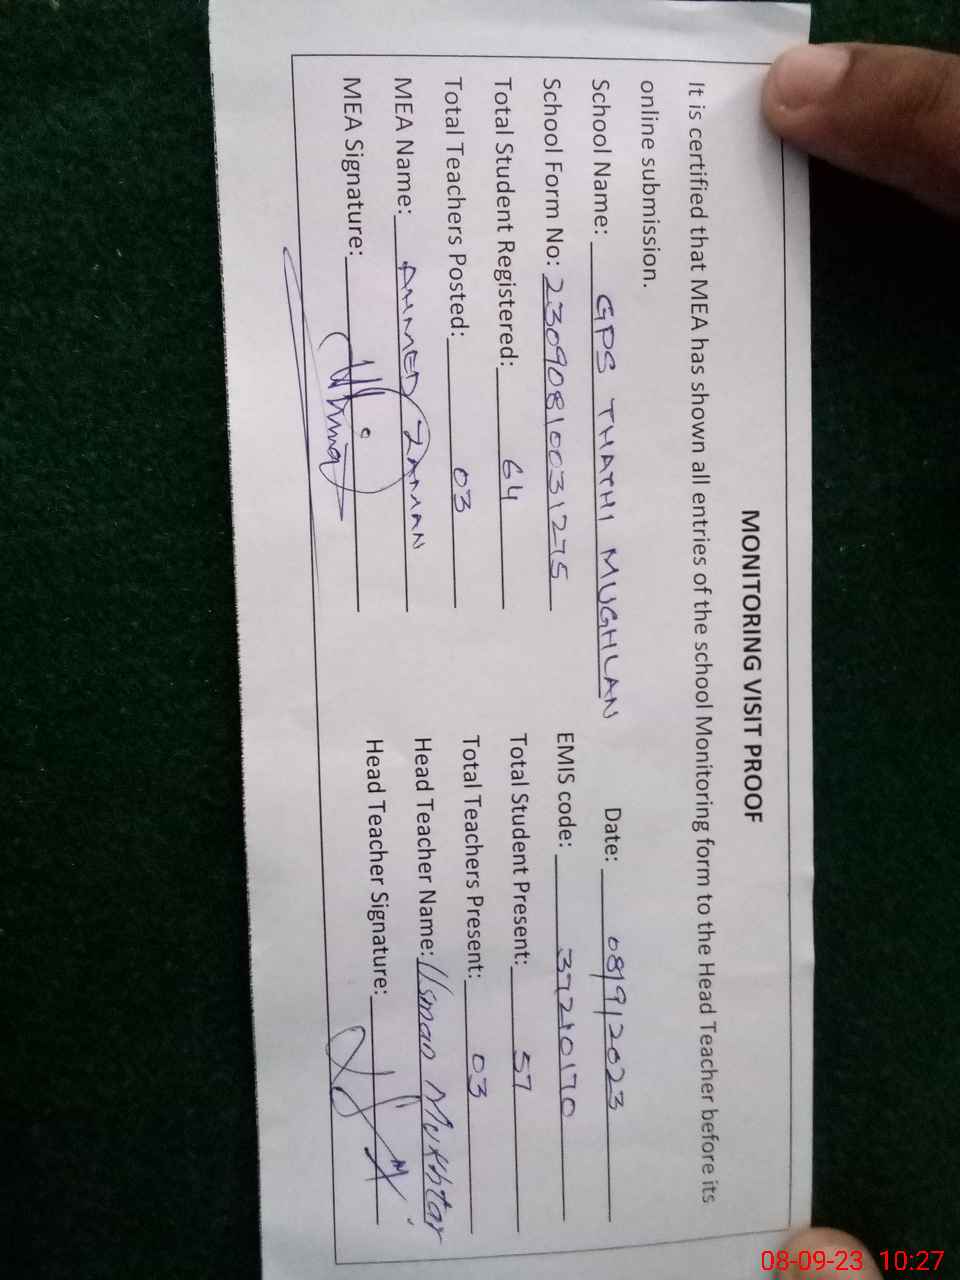 MONITORING VISIT PROOF
It is certified that MEA has shown all entries of the school Monitoring form to the Head Teacher before its
online submission.
School Name: GPS THATHI MUGHLAN Date: 08/9/2023
School Form No: 230908100031275 EMIS code: 37210170
Total Student Registered: 64 Total Student Present: 57
Total Teachers Posted: 03 Total Teachers Present: 03
MEA Name: AHMED ZAMAN Head Teacher Name: Usman Mukhtar
MEA Signature: Head Teacher Signature:
08-09-23 10:27